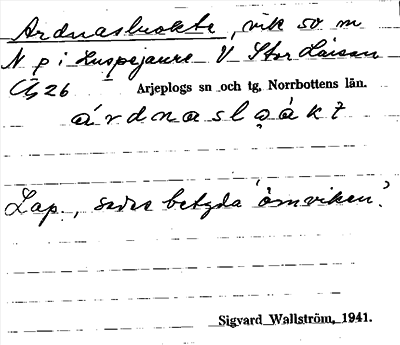 Ardnasluokta, vik so m
N p i Luspejaure V Stor Laisan
26 Arjeplogs sn och tg, Norrbottens län.
árdnaslạ̊ákt
Lap., säges betyda 'örnviken'.
Sigvard Wallström, 1941.